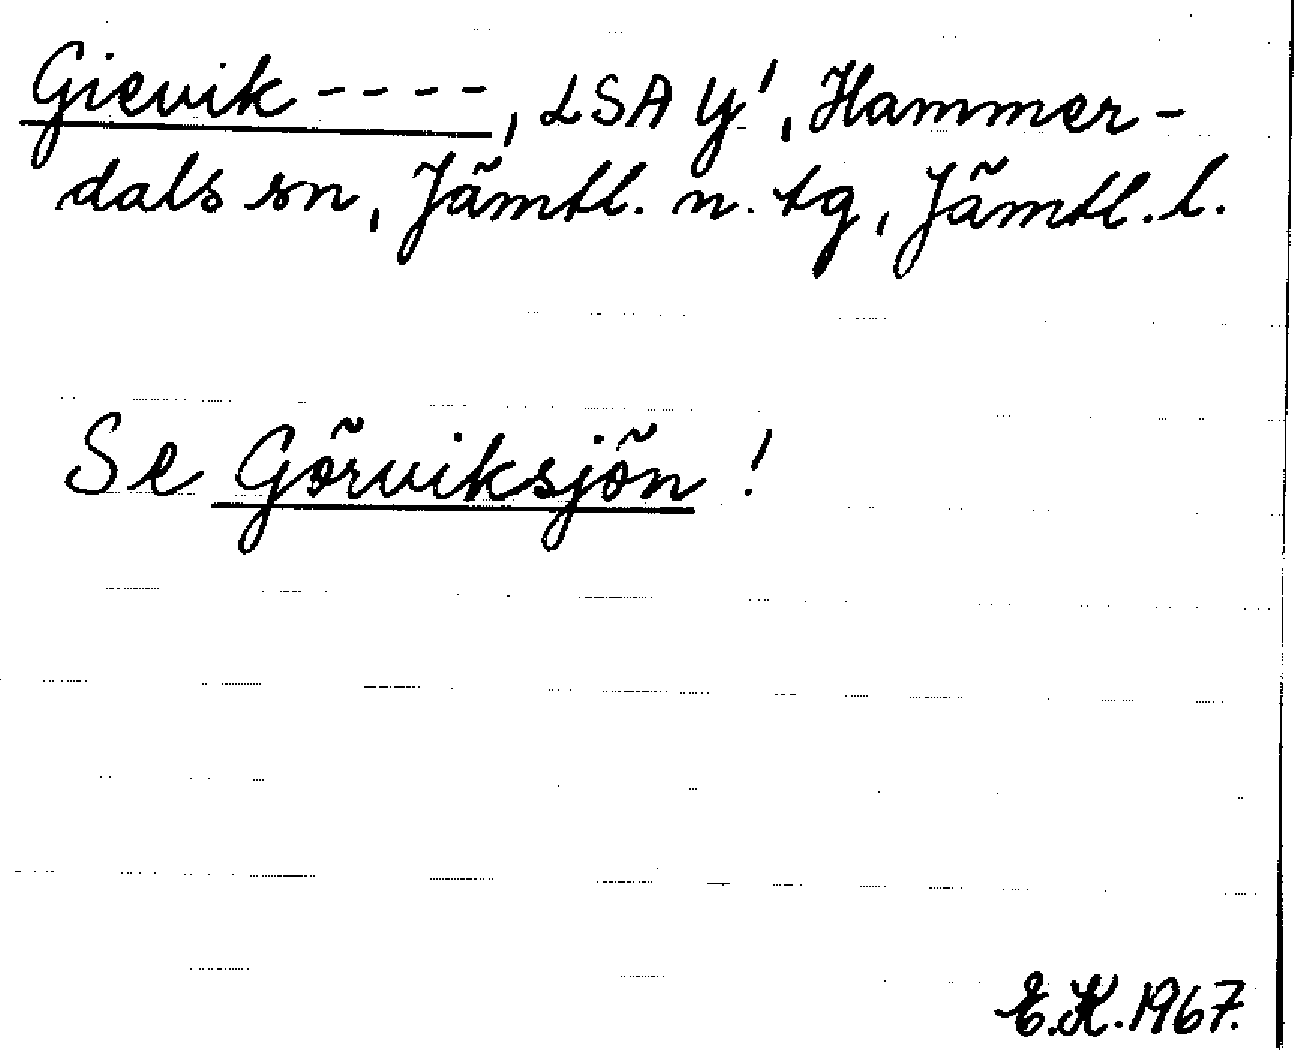 Gievik ----, LSA Y', Hammer-
dals sn, Jämtl. n. tg, Jämtl. l.
Se Görviksjön !
E.K. 1967.